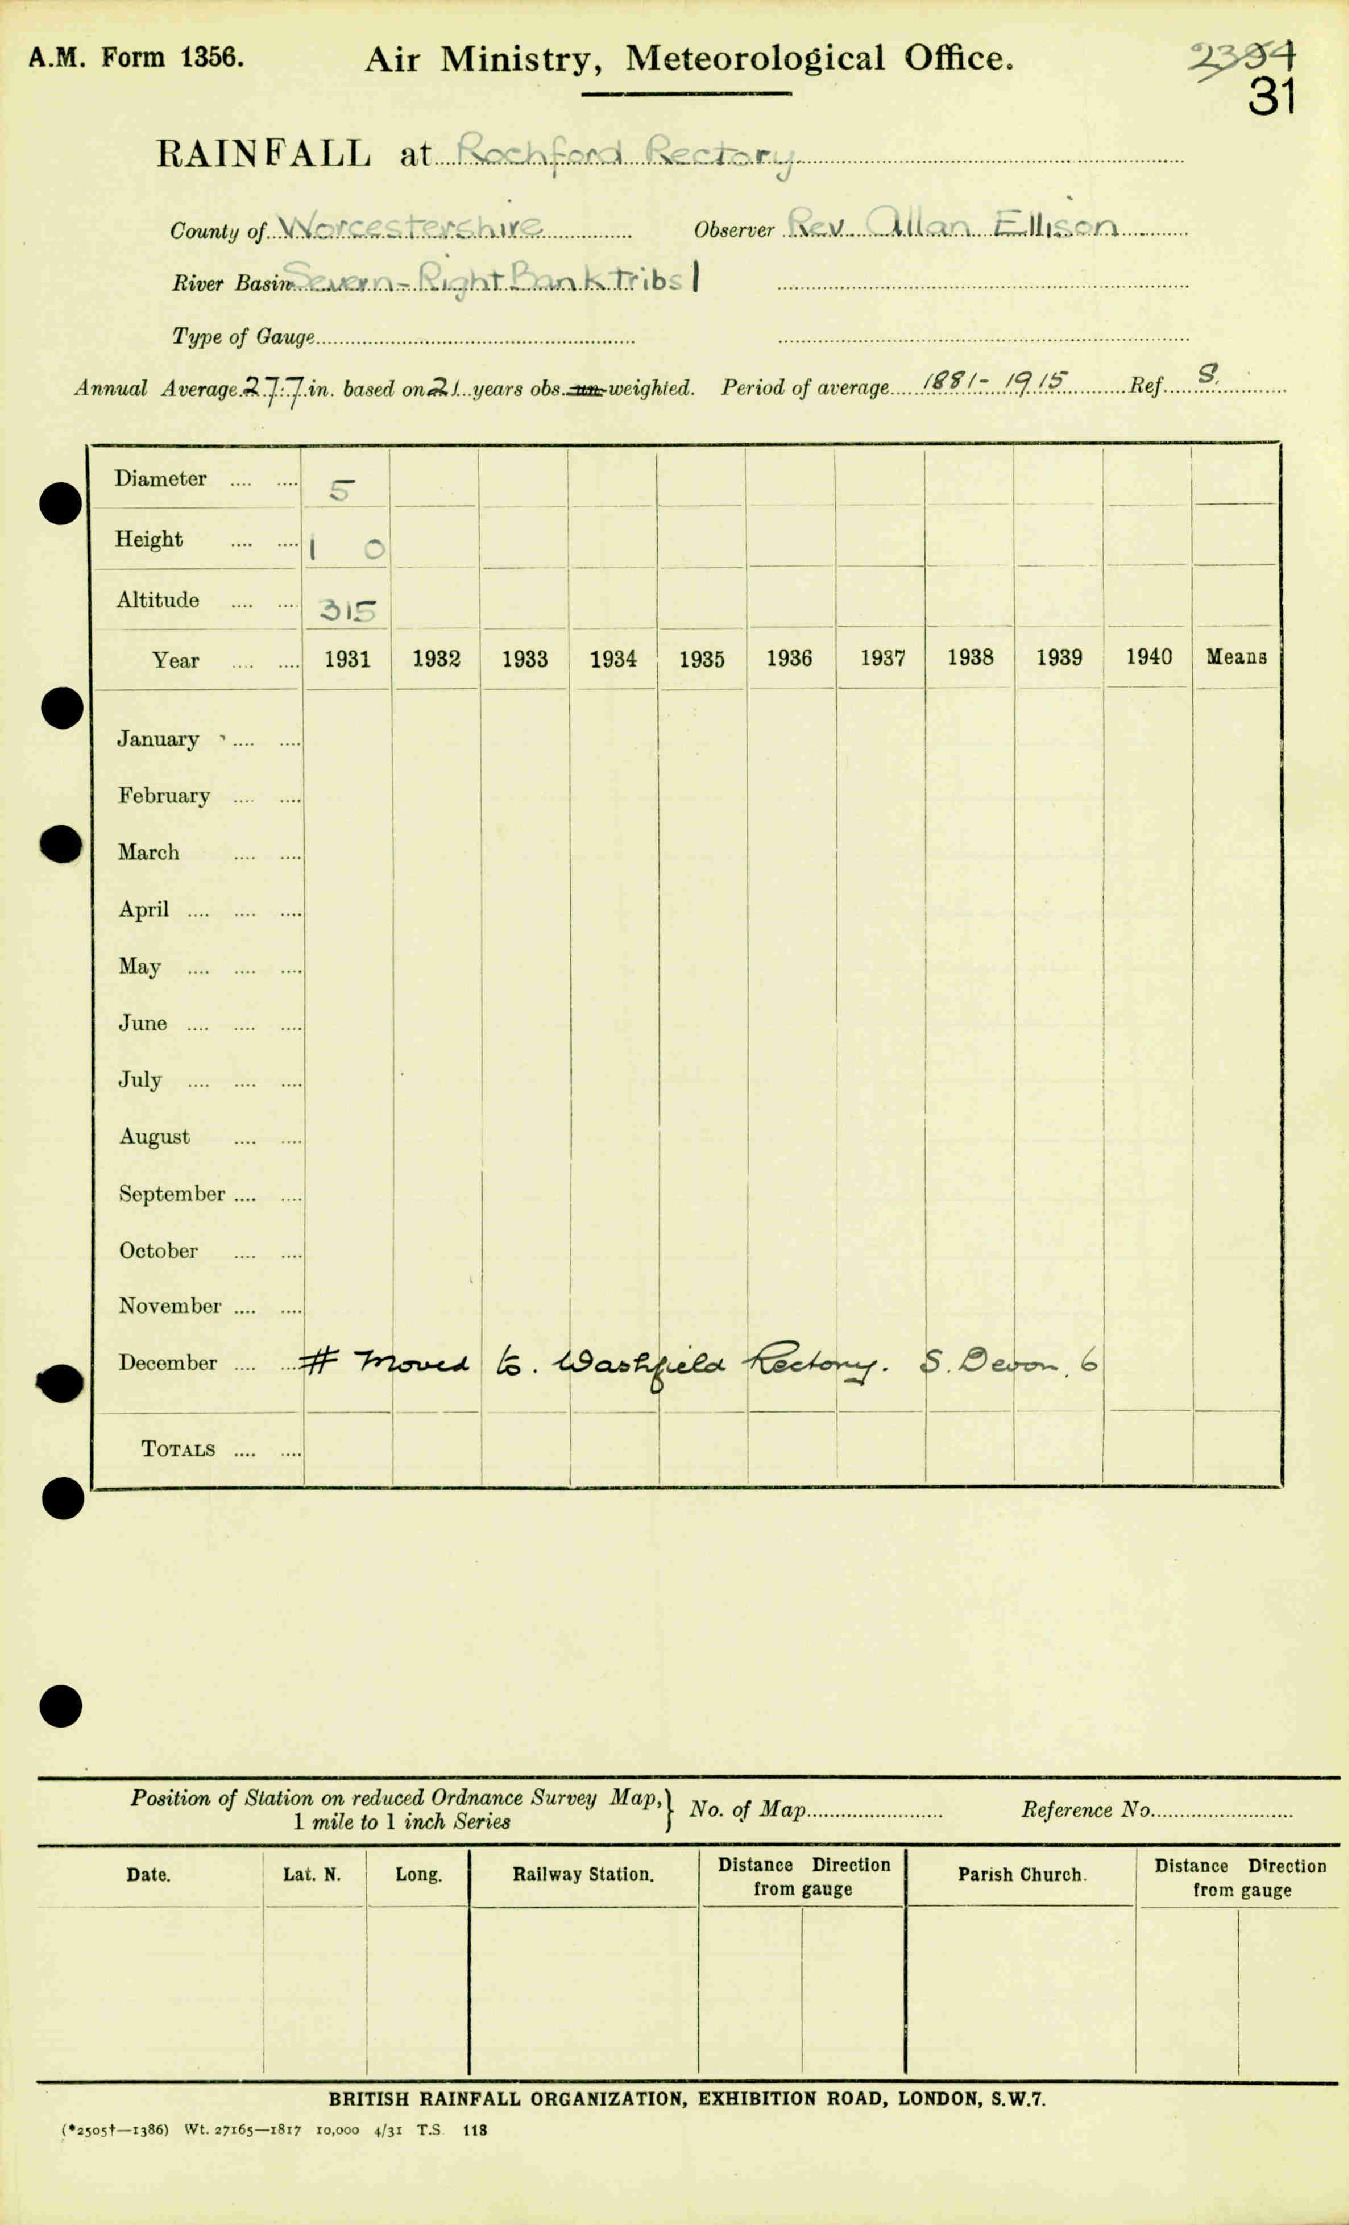 A.M. Form 1356. Air Ministry, Meteorological Office. 2354
31
RAINFALL at Rochford Rectory
County of Worcestershire Observer Rev. Allan Ellison
River Basin Severn - Right Bank Tribs 1
Type of Gauge
Annual Average 27.7 in. based on 21 years obs. un-weighted. Period of average 1881 - 1915 Ref. S.
Diameter .... .... 5
Height .... .... 1 0
Altitude .... .... 315
Year .... .... 1931 1932 1933 1934 1935 1936 1937 1938 1939 1940 Means
January .... ....
February .... ....
March .... ....
April .... .... ....
May .... .... ....
June .... .... ....
July .... .... ....
August .... ....
September .... ....
October .... ....
November .... ....
December .... .... # Moved to. Washfield Rectory. S. Devon. 6
TOTALS .... ....
Position of Station on reduced Ordnance Survey Map,} No. of Map Reference No.
1 mile to 1 inch Series
Date. Lat. N. Long. Railway Station. Distance Direction from gauge Parish Church. Distance Direction from gauge
BRITISH RAINFALL ORGANIZATION, EXHIBITION ROAD, LONDON, S.W.7.
(*2505†—1386) Wt. 27165—1817 10,000 4/31 T.S. 118